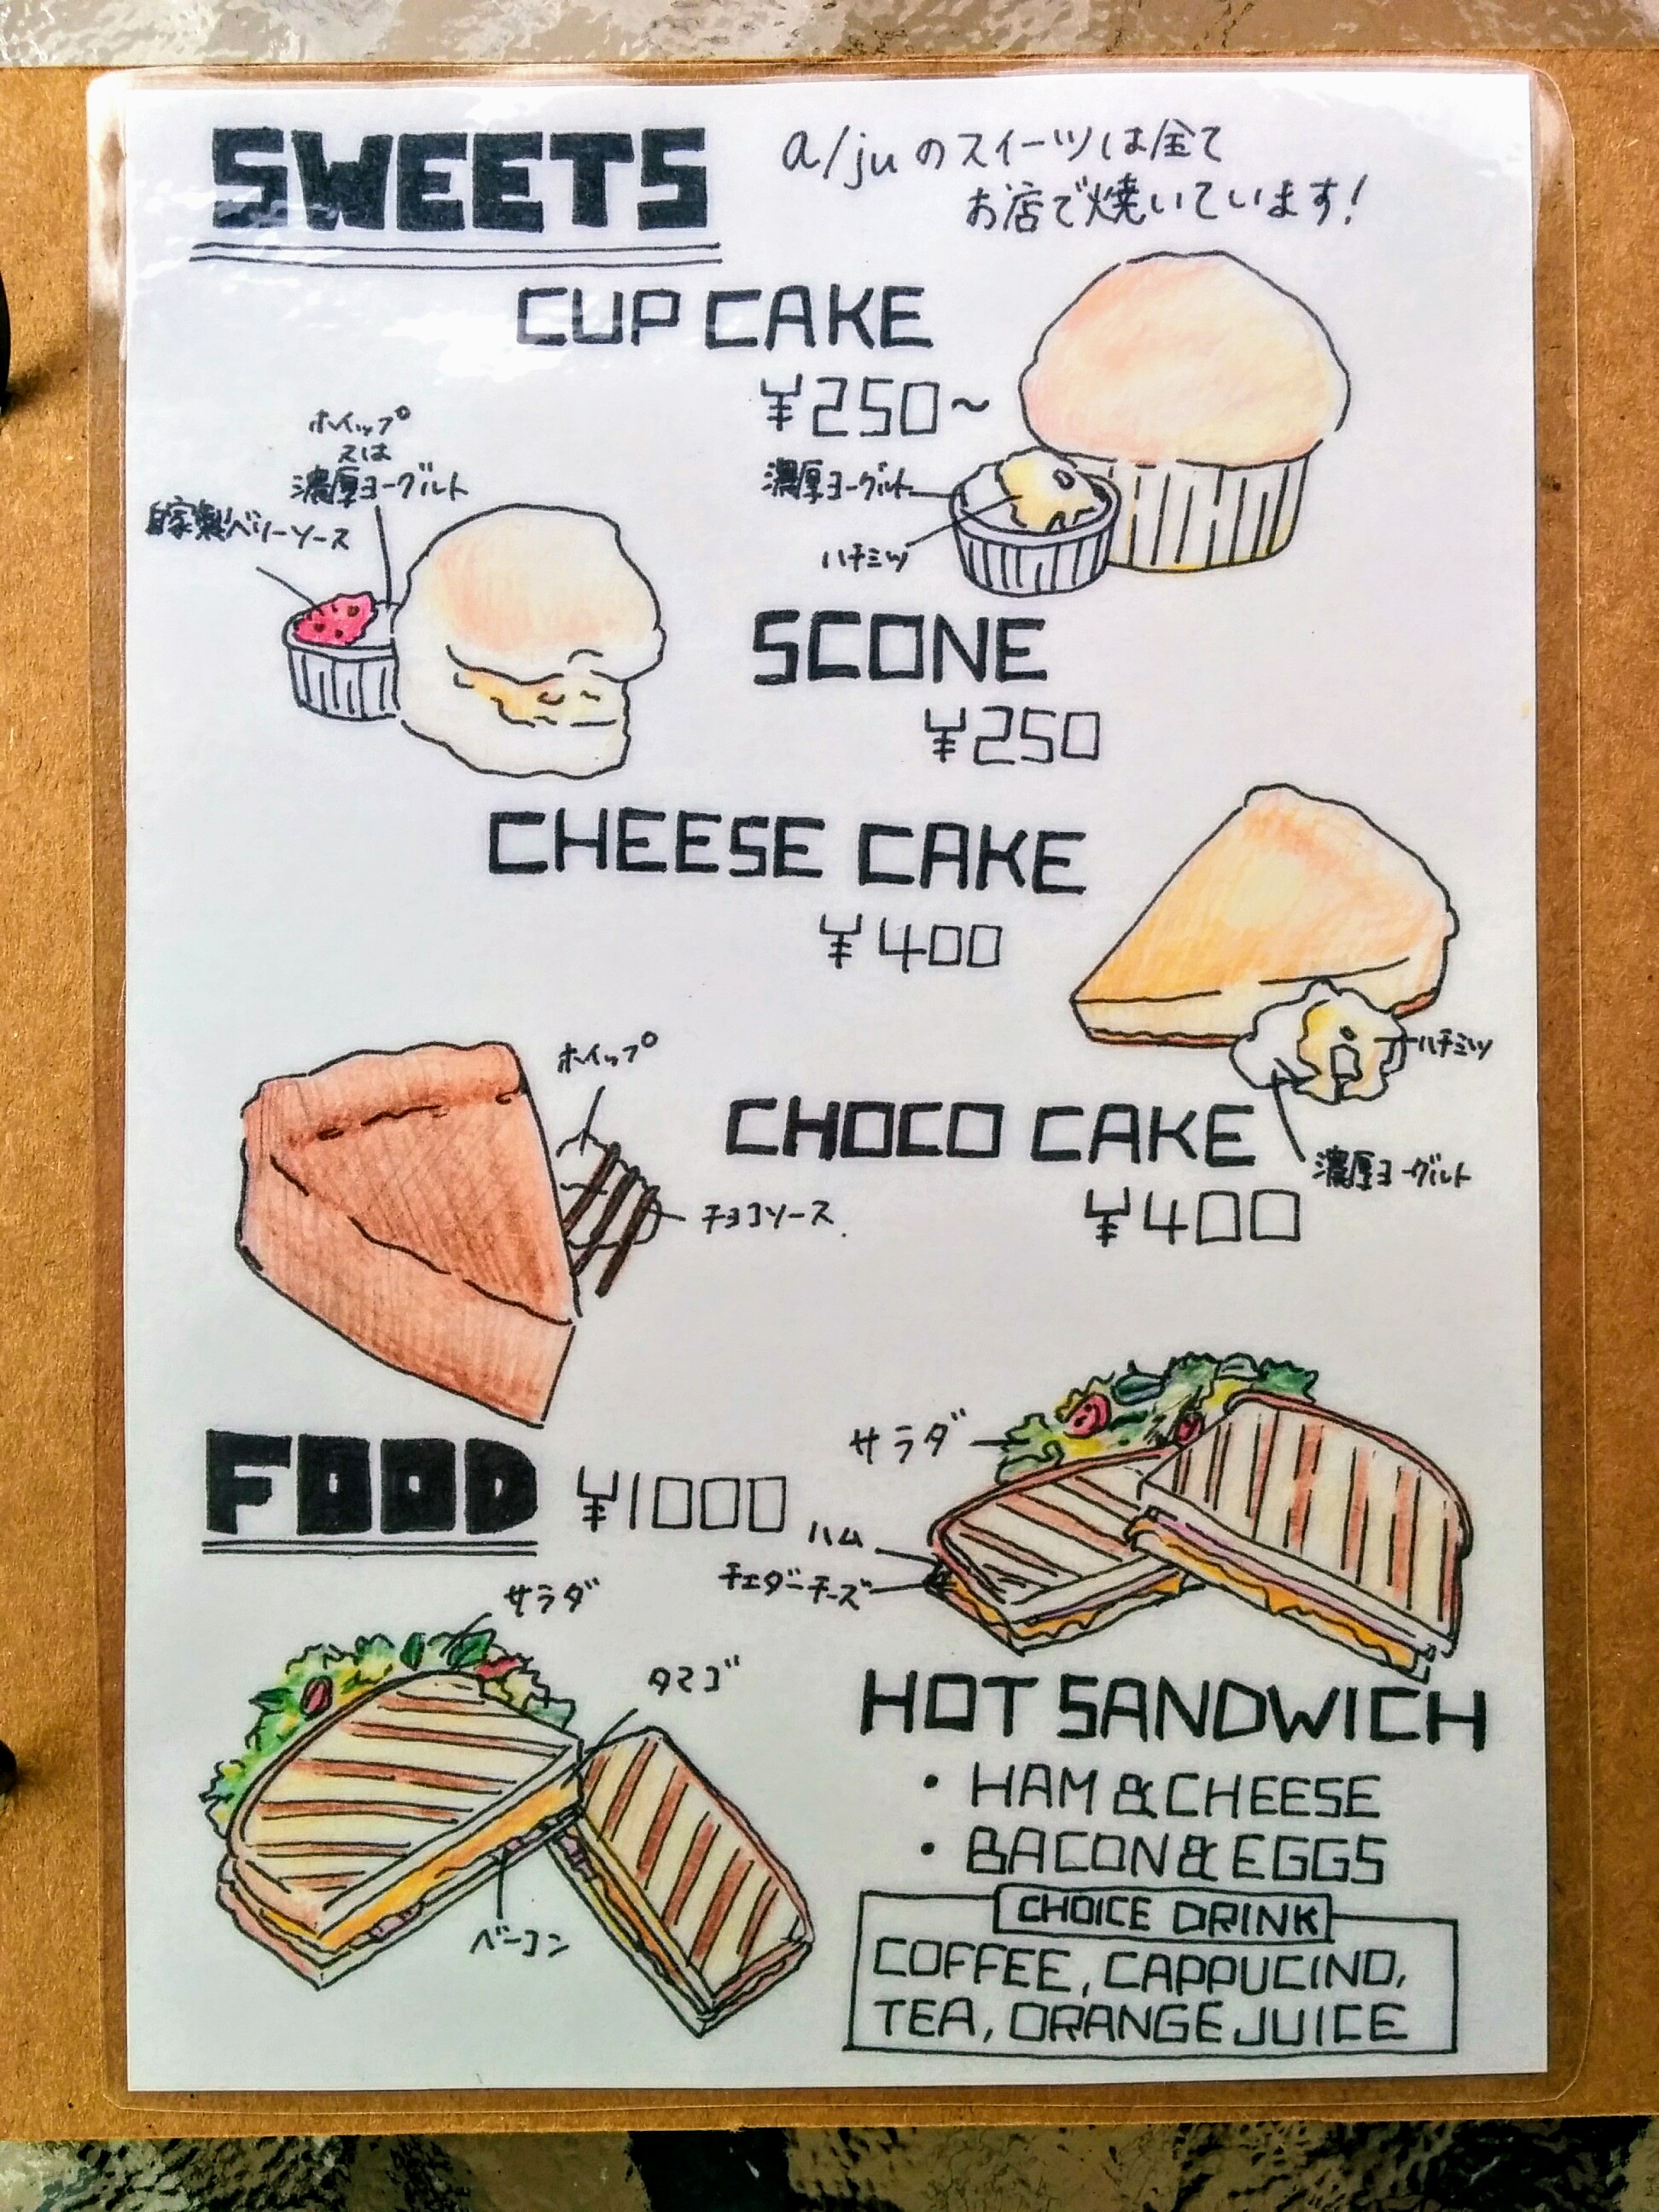 SWEETS
a/juのスイーツは全て
お店で焼いています!
CUP CAKE
¥250~
濃厚ヨーグルト
ハチミツ
ホイップ
又は
濃厚ヨーグルト
自家製ベリーソース
SCONE
¥250
CHEESE CAKE
¥400
ハチミツ
濃厚ヨーグルト
ホイップ
チョコソース.
CHOCO CAKE
¥400
FOOD ¥1000
サラダ
ハム
チェダーチーズ
サラダ
タマゴ
ベーコン
HOT SANDWICH
・HAM & CHEESE
・BACON & EGGS
CHOICE DRINK
COFFEE, CAPPUCINO,
TEA, ORANGE JUICE